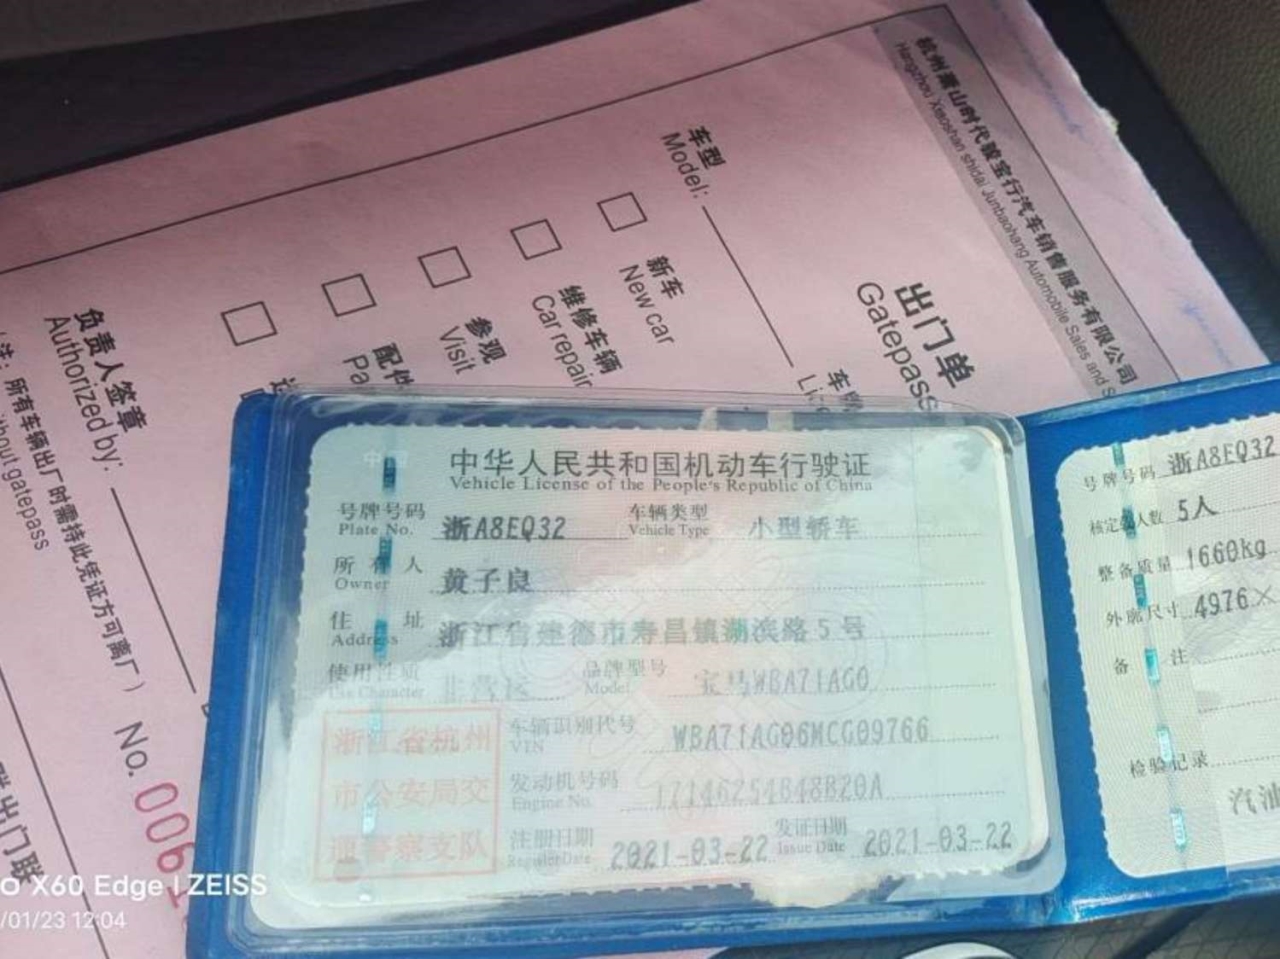 杭州萧山时代骏宝行汽车销售服务有限公司
Hangzhou Xiaoshan shidai Junbaohang Automobile Sales and S
出门单
Gatepass
车型
Model:
车牌
新车
New car
维修车辆
Car repair
参观
Visit
配件
Pa
负责人签章
Authorized by:
注：所有车辆出厂时需持此凭证方可离厂）
without gatepass
No.
出门联
中华人民共和国机动车行驶证
Vehicle License of the People's Republic of China
号牌号码 浙A8EQ32 车辆类型 小型轿车
Plate No. Vehicle Type
所有人 黄子良
Owner
住址 浙江省建德市寿昌镇湖滨路5号
Address
使用性质 非营运 品牌型号 宝马WBA71AG0
Use Character Model
浙江省杭州
市公安局交
通警察支队
车辆识别代号 WBA71AG06MCG09766
VIN
发动机号码 17146254B48B20A
Engine No.
注册日期 2021-03-22 发证日期 2021-03-22
Register Date Issue Date
号牌号码 浙A8EQ32
核定载人数 5人
整备质量 1660kg
外廓尺寸 4976×
备注
检验记录
汽油
X60 Edge | ZEISS
/01/23 12:04